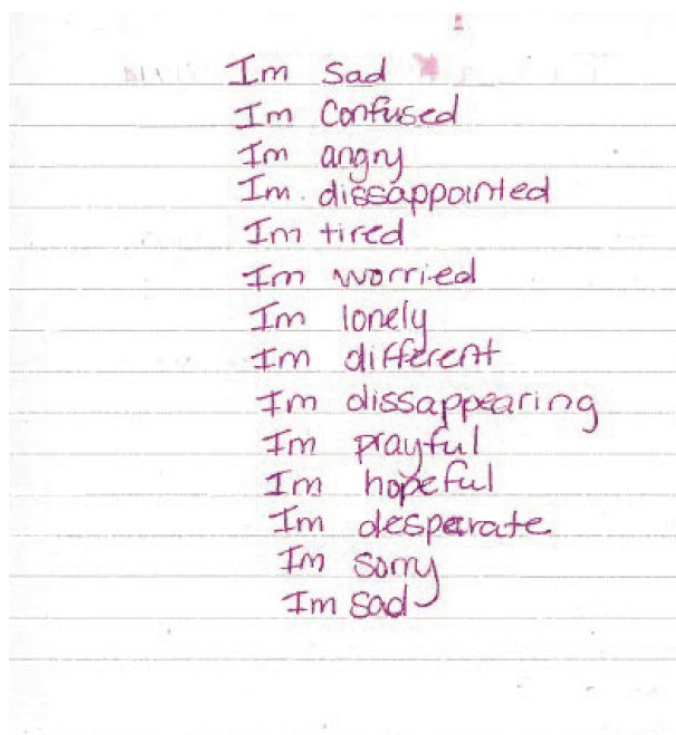 Im Sad
Im Confused
Im angry
Im dissappointed
Im tired
Im worried
Im lonely
Im different
Im dissappearing
Im prayful
Im hopeful
Im desperate
Im sorry
Im sad